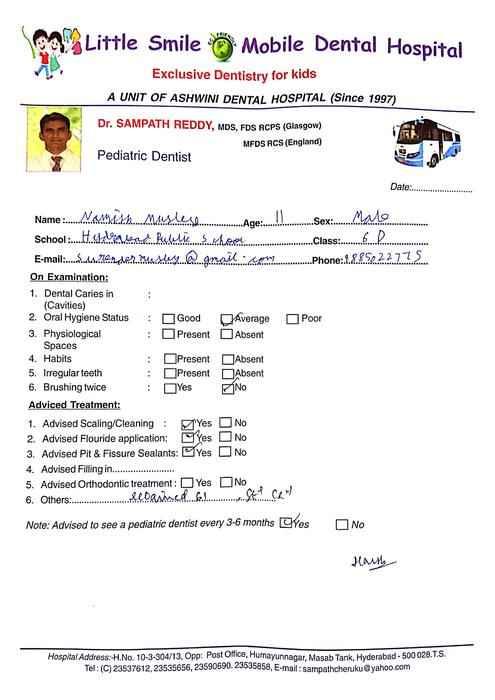 Little Smile Mobile Dental Hospital
ECO FRIENDLY
Exclusive Dentistry for kids
A UNIT OF ASHWINI DENTAL HOSPITAL (Since 1997)
Dr. SAMPATH REDDY, MDS, FDS RCPS (Glasgow)
MFDS RCS (England)
Pediatric Dentist
Date:
Name: Age: 11 Sex: Male
School: Hyderabad Public School Class: 6 D
E-mail: @ gmail.com Phone: 9885022775
On Examination:
1. Dental Caries in :
(Cavities)
2. Oral Hygiene Status : Good Average Poor
3. Physiological : Present Absent
Spaces
4. Habits : Present Absent
5. Irregular teeth : Present Absent
6. Brushing twice : Yes No
Adviced Treatment:
1. Advised Scaling/Cleaning : Yes No
2. Advised Flouride application: Yes No
3. Advised Pit & Fissure Sealants: Yes No
4. Advised Filling in
5. Advised Orthodontic treatment : Yes No
6. Others: retained
Note: Advised to see a pediatric dentist every 3-6 months Yes No
Hospital Address:-H.No. 10-3-304/13, Opp: Post Office, Humayunnagar, Masab Tank, Hyderabad - 500 028.T.S.
Tel : (C) 23537612, 23535656, 23590690. 23535858, E-mail : sampathcheruku@yahoo.com